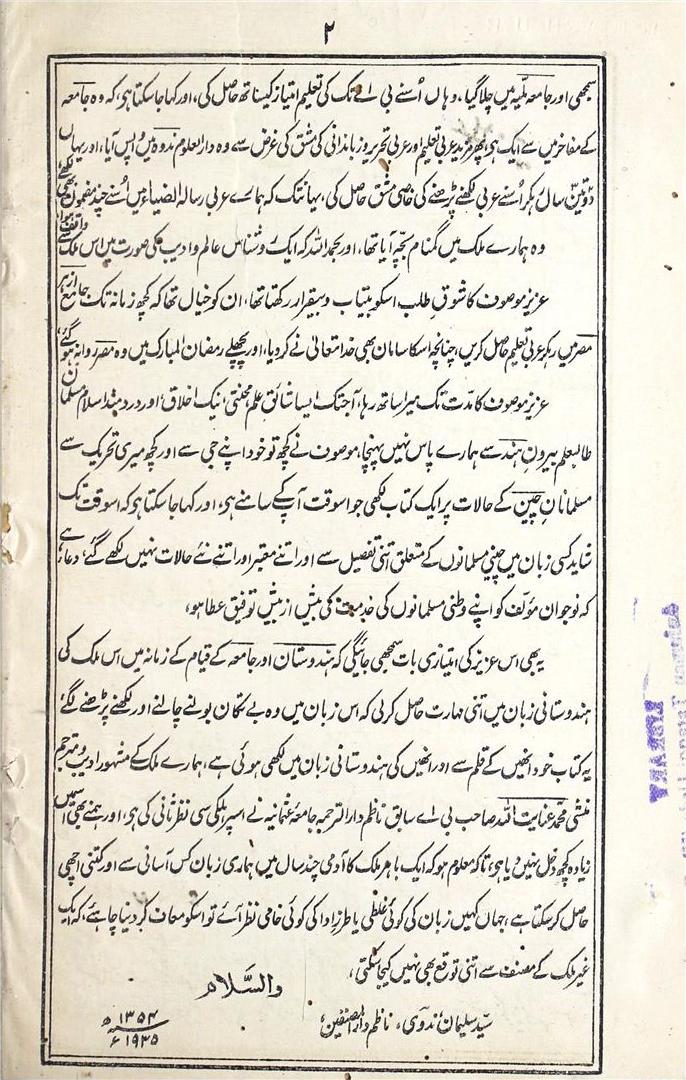 ۲
سمجھی اور جامعہ ملیہ میں چلا گیا، وہاں اُسنے بی اے تک کی تعلیم امتیاز کیساتھ حاصل کی، اور کہا جا سکتا ہی، کہ وہ جامعہ
کے مفاخر میں سے ایک ہی، پھر مزید عربی تعلیم اور عربی تحریر و زباندانی کی مشق کی غرض سے وہ دارالعلوم ندوہ میں واپس آیا، اور یہاں
دو تین سال رہکر اُسنے عربی لکھنے پڑھنے کی خاصی مشق حاصل کی، یہانتک کہ ہمارے عربی رسالہ الضیاء میں اُسنے چند مضمون بھی لکھے
وہ ہمارے ملک میں گمنام سچّہ آیا تھا، اور بحمد اللہ کہ ایک روشناس عالم و ادیب کی صورت میں اس ملک سے واقف ہوا،
عزیز موصوف کا شوقِ طلب اسکو بیتاب و بیقرار رکھتا تھا، ان کو خیال تھا کہ کچھ زمانہ تک جامع ازہر
مصر میں رہکر عربی تعلیم حاصل کریں، چنانچہ اسکا سامان بھی خدا تعالیٰ نے کر دیا، اور پچھلے رمضان المبارک میں وہ مصر روانہ ہو گئے،
عزیز موصوف کا مدت تک میرا ساتھ رہا، آجتک ایسا شائق علم، محنتی، نیک اخلاق، اور دردمند اسلام مسلمان
طالبعلم بیرونِ ہند سے ہمارے پاس نہیں پہنچا، موصوف نے کچھ تو خود اپنے جی سے اور کچھ میری تحریک سے
مسلمانانِ چین کے حالات پر ایک کتاب لکھی جو اسوقت آپکے سامنے ہی، اور کہا جا سکتا ہی کہ اسوقت تک
شاید کسی زبان میں چینی مسلمانوں کے متعلق اتنی تفصیل سے اور اتنے معتبر اور اتنے نئے حالات نہیں لکھے گئے، دعا ہے
کہ نوجوان مؤلف کو اپنے وطنی مسلمانوں کی خدمت کی بیش از بیش توفیق عطا ہو،
یہ بھی اس عزیز کی امتیازی بات سمجھی جائیگی کہ ہندوستان اور جامعہ کے قیام کے زمانہ میں اس ملک کی
ہندوستانی زبان میں اتنی مہارت حاصل کر لی کہ اس زبان میں وہ بے تکان بولنے چالنے اور لکھنے پڑھنے لگے،
یہ کتاب خود انھیں کے قلم سے اور انھیں کی ہندوستانی زبان میں لکھی ہوئی ہے، ہمارے ملک کے مشہور ادیب و مترجم
منشی محمد عنایت اللہ صاحب بی اے سابق ناظم دارالترجمہ جامعہ عثمانیہ نے اسپر ہلکی سی نظر ثانی کی ہی، اور ہمنے بھی اسمیں
زیادہ کچھ دخل نہیں دیا ہی، تاکہ معلوم ہو کہ ایک باہر ملک کا آدمی چند سال میں ہماری زبان کس آسانی سے اور کتنی اچھی
حاصل کر سکتا ہے، جہاں کہیں زبان کی کوئی غلطی یا طرز ادا کی کوئی خامی نظر آئے تو اسکو معاف کر دینا چاہئے، کہ ایک
غیر ملک کے مصنف سے اتنی توقع بھی نہیں کیجا سکتی،
والسَّلام
سیّد سلیمان ندوی، ناظم دارالمصنفین،
۱۳۵۴ ھ
۱۹۳۵ ء
LIBRARY